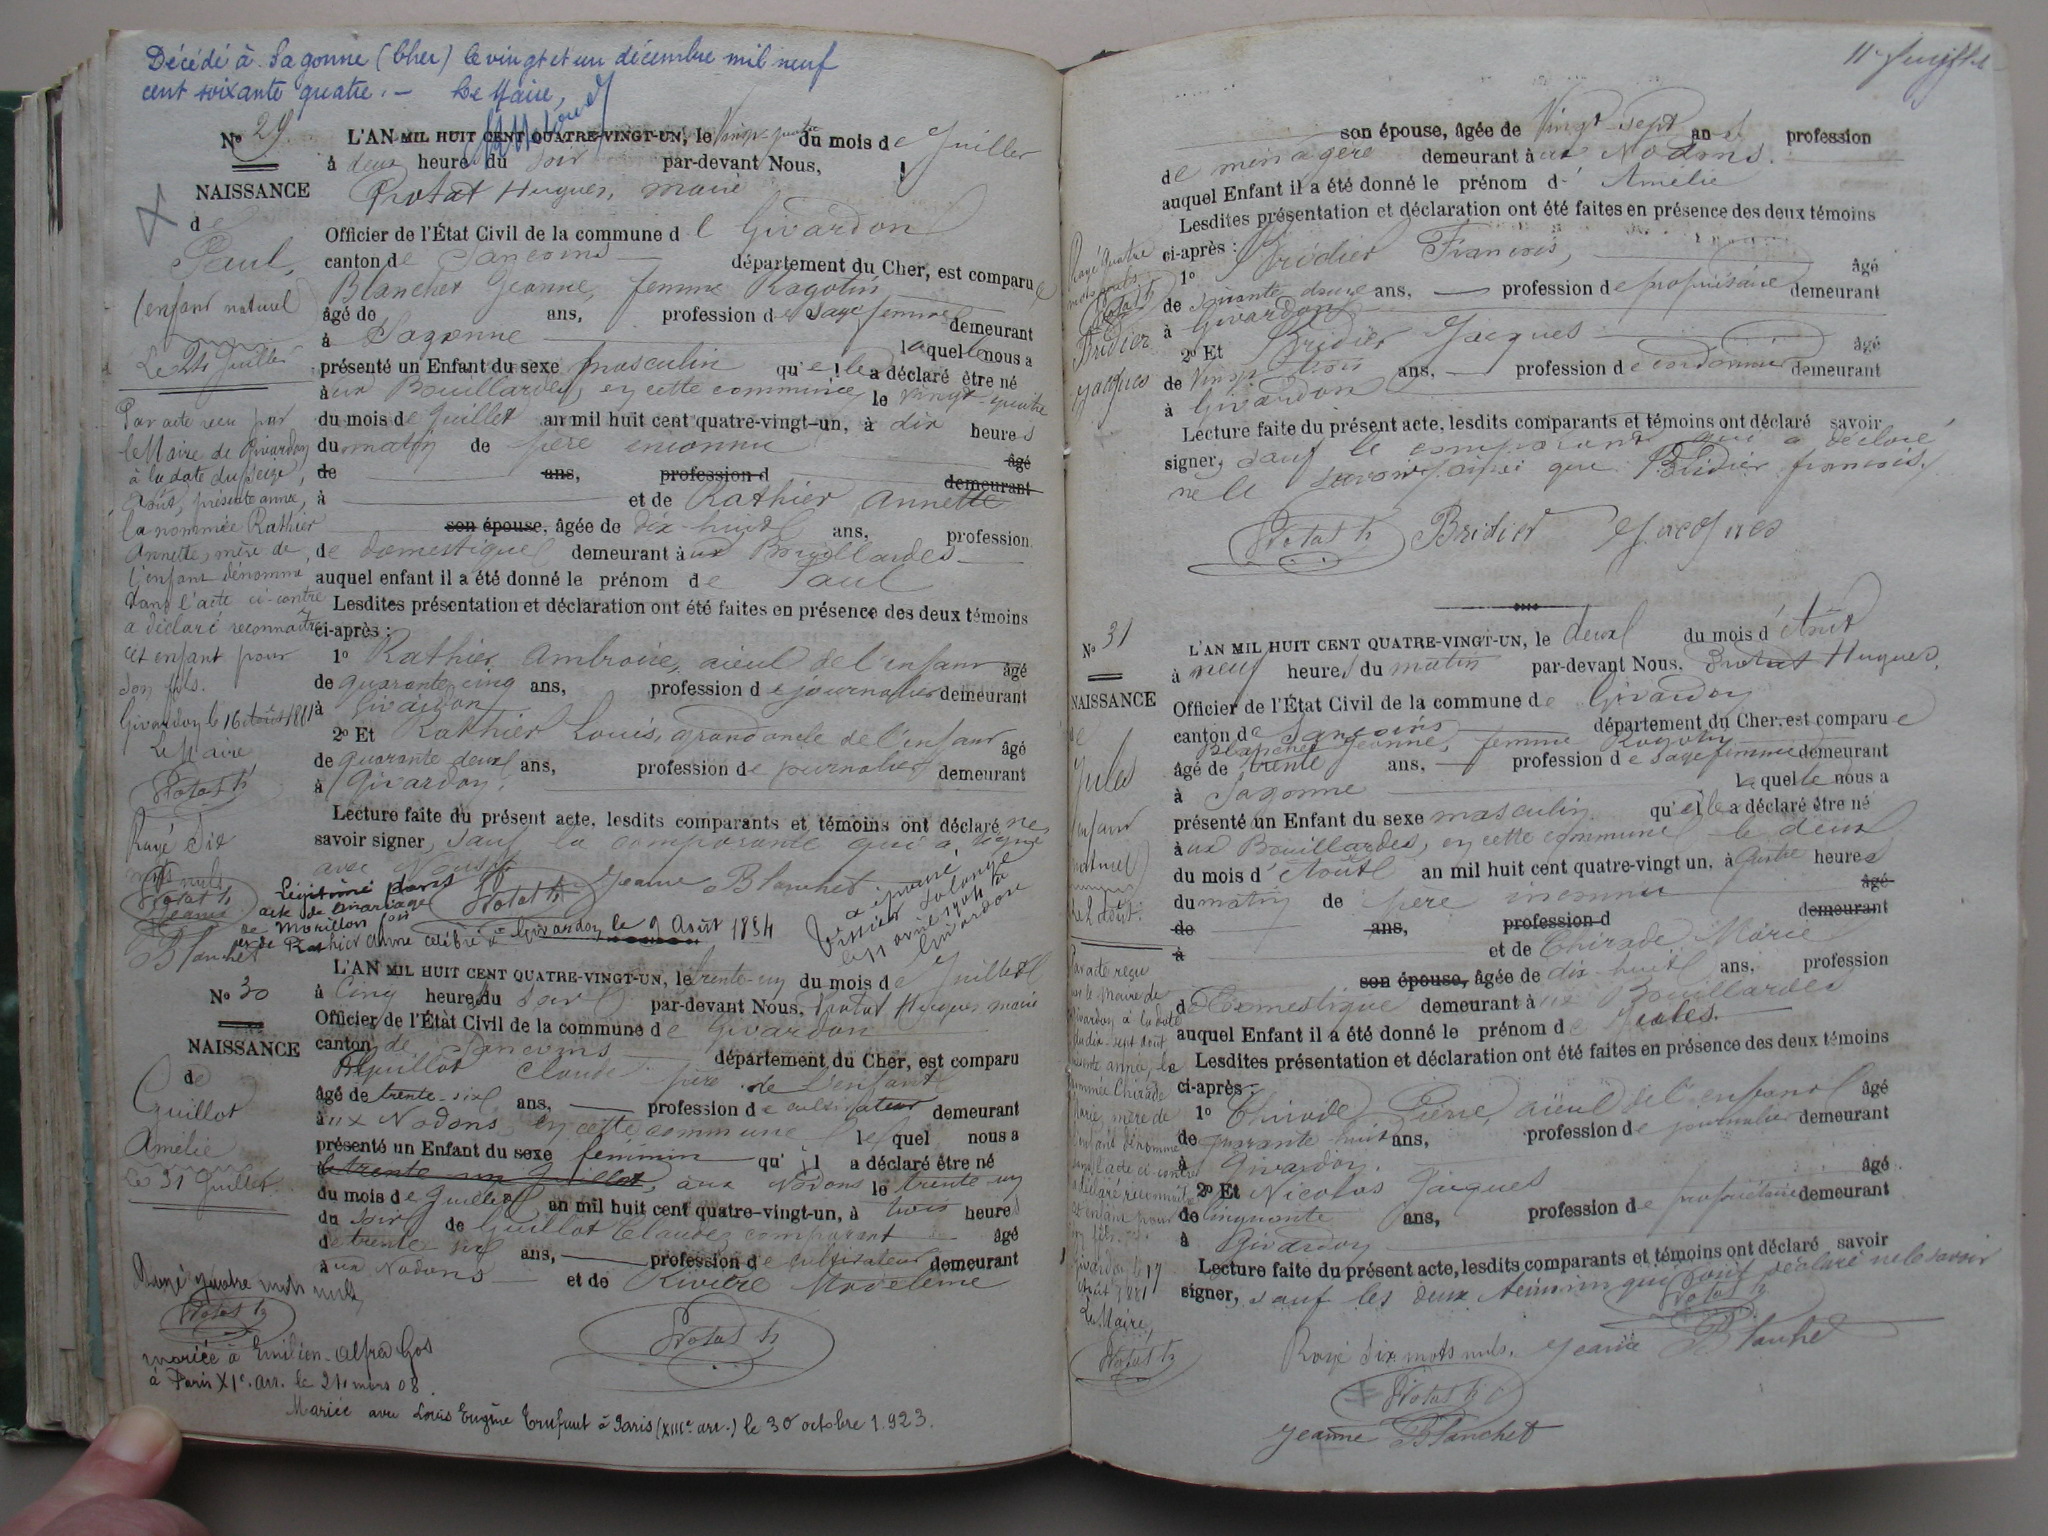 Décédé à Sagonne (Cher) le vingt et un décembre mil neuf
cent soixante quatre. — Le Maire,
No 29
L'AN MIL HUIT CENT QUATRE-VINGT-UN, le Vingt quatre du mois de Juillet
à deux heure du soir par-devant Nous,
NAISSANCE
Protat Hugues, maire
de
Officier de l'État Civil de la commune de Givardon
Paul,
canton de Sancoins département du Cher, est comparue
(enfant naturel
Blanchet Jeanne, femme Ragotin
âgé de ans, profession de sage femme demeurant
à Sagonne laquelle nous a
Le 24 Juillet
présenté un Enfant du sexe masculin qu'elle a déclaré être né
aux Bouillardes, en cette commune, le vingt-quatre
du mois de Juillet an mil huit cent quatre-vingt-un, à dix heures
du matin de père inconnu âgé
de ans, profession d demeurant
à et de Rathier Annette
son épouse, âgée de dix-huit ans, profession
de domestique demeurant aux Bouillardes
auquel enfant il a été donné le prénom de Paul
Lesdites présentation et déclaration ont été faites en présence des deux témoins
ci-après :
1o Rathier Ambroise, aïeul de l'enfant âgé
de quarante cinq ans, profession de journalier demeurant
à Givardon
2o Et Rathier Louis, grand oncle de l'enfant âgé
de quarante deux ans, profession de journalier demeurant
à Givardon.
Lecture faite du présent acte, lesdits comparants et témoins ont déclaré ne
savoir signer, sauf la comparante qui a signé
avec Nous
Protat h Jeanne Blanchet
Par acte reçu par
le Maire de Givardon
à la date du seize
Août, présente année,
la nommée Rathier
Annette, mère de
l'enfant dénommé
dans l'acte ci-contre
a déclaré reconnaître
cet enfant pour
son fils.
Givardon le 16 Août 1881
Le Maire
Protat h
Rayé dix
mots nuls
Protat h
Jeanne
Blanchet
Légitimé dans
acte de mariage
de Morillon
et de Rathier Anne célébré à Givardon le 9 Août 1884
a épousé
Solange
Givardon
No 30
L'AN MIL HUIT CENT QUATRE-VINGT-UN, le trente-un du mois de Juillet
à Cinq heures du soir par-devant Nous, Protat Hugues maire
Officier de l'État Civil de la commune de Givardon
NAISSANCE
canton de Sancoins département du Cher, est comparu
de
Guillot Claude père de l'enfant
âgé de trente-six ans, profession de cultivateur demeurant
Guillot
aux Nodons, en cette commune lequel nous a
Amélie
présenté un Enfant du sexe féminin qu'il a déclaré être né
Le 31 Juillet
le trente-un Juillet, aux Nodons le trente un
du mois de Juillet an mil huit cent quatre-vingt-un, à trois heures
du soir de Guillot Claude, comparant âgé
de trente six ans, profession de cultivateur demeurant
aux Nodons et de Rivière Madeleine
Rayé quatre mots nuls
Protat h
Protat h
mariée à Emilien-Alfred Gos
à Paris XIe. arr. le 21 mars 08.
Mariée avec Louis Eugène Trufaut à Paris (XIIIe arr.) le 30 octobre 1923.
son épouse, âgée de Vingt-sept ans, profession
de ménagère demeurant aux Nodons.
auquel Enfant il a été donné le prénom d' Amélie
Lesdites présentation et déclaration ont été faites en présence des deux témoins
ci-après :
1o Bridier François, âgé
de soixante douze ans, profession de propriétaire demeurant
à Givardon
2o Et Bridier Jacques âgé
de Vingt trois ans, profession de cordonnier demeurant
à Givardon
Lecture faite du présent acte, lesdits comparants et témoins ont déclaré savoir
signer, sauf le comparant qui a déclaré
ne le savoir, ainsi que Bridier François.
Protat h Bridier Jacques
Rayé quatre
mots nuls
Protat h
Bridier
Jacques
No 31
L'AN MIL HUIT CENT QUATRE-VINGT-UN, le deux du mois d'Août
à neuf heures du matin par-devant Nous, Protat Hugues,
NAISSANCE
Officier de l'État Civil de la commune de Givardon
de
canton de Sancoins département du Cher, est comparue
Blanchet Jeanne, femme Ragotin
Jules
âgé de trente ans, profession de sage femme demeurant
à Sagonne laquelle nous a
enfant
naturel
présenté un Enfant du sexe masculin qu'elle a déclaré être né
aux Bouillardes, en cette commune le deux
le 2 Août.
du mois d'Août an mil huit cent quatre-vingt un, à quatre heures
du matin de père inconnu âgé
de ans, profession d demeurant
à et de Thirade Marie
son épouse, âgée de dix-huit ans, profession
de Domestique demeurant aux Bouillardes
auquel Enfant il a été donné le prénom de Jules.
Lesdites présentation et déclaration ont été faites en présence des deux témoins
ci-après :
1o Thirade Pierre, aïeul de l'enfant âgé
de quarante huit ans, profession de journalier demeurant
à Givardon.
2o Et Nicolas Jacques âgé
de cinquante ans, profession de propriétaire demeurant
à Givardon
Lecture faite du présent acte, lesdits comparants et témoins ont déclaré savoir
signer, sauf les deux témoins qui ont déclaré ne le savoir
Protat h
Rayé dix mots nuls. Jeanne Blanchet
Protat h
Jeanne Blanchet
Par acte reçu
par le Maire de
Givardon à la date
du dix-sept août
présente année, la
nommée Thirade
Marie, mère de
l'enfant dénommé
dans l'acte ci-contre
a déclaré reconnaître
cet enfant pour
son fils.
Givardon, le 17
Août 1881
Le Maire,
Protat h